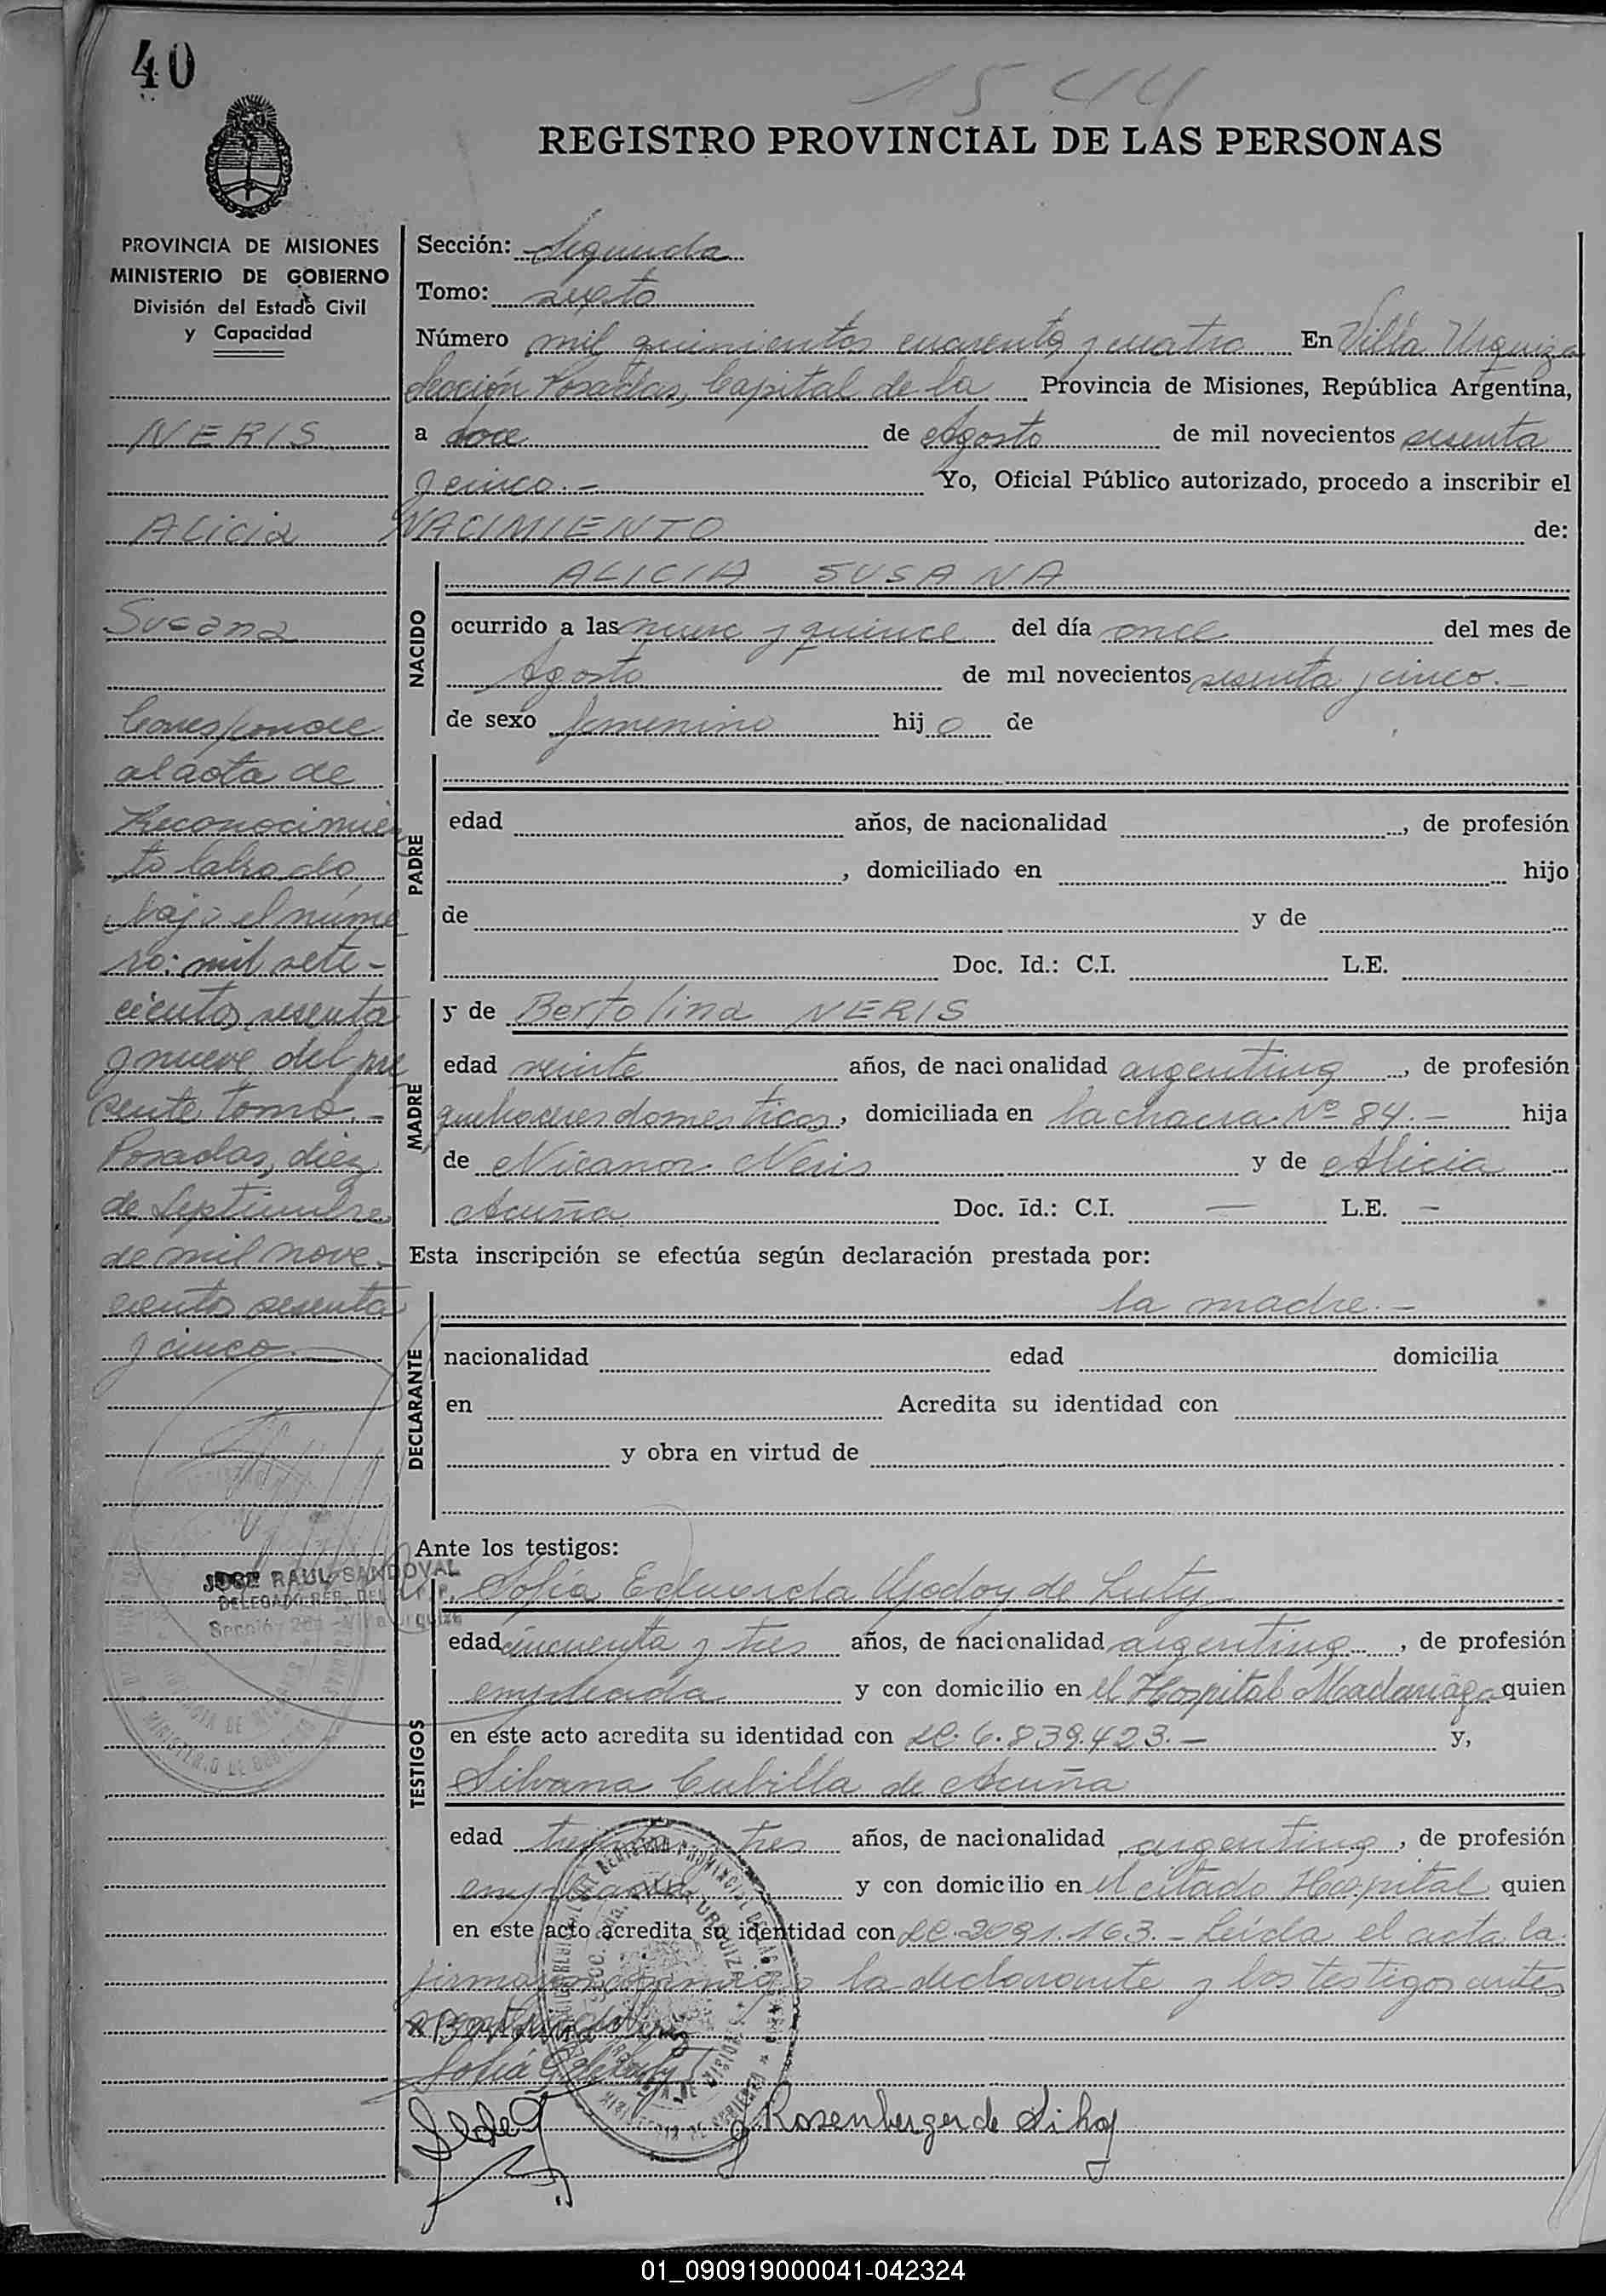 40
1544
REGISTRO PROVINCIAL DE LAS PERSONAS
PROVINCIA DE MISIONES
MINISTERIO DE GOBIERNO
División del Estado Civil
y Capacidad
NERIS
Alicia
Susana
Corresponde
al acta de
Reconocimien
to labrado
bajo el núme
ro: mil sete-
cientos sesenta
y nueve del pre
sente tomo.-
Posadas, diez
de Septiembre
de mil nove-
cientos sesenta
y cinco.-
JOSE RAUL SANDOVAL
DELEGADO REG. DEL
Sección 2da - Villa Urquiza
Sección: Segunda
Tomo: sexto
Número mil quinientos cuarenta y cuatro En Villa Urquiza
Sección Posadas, Capital de la Provincia de Misiones, República Argentina,
a doce de Agosto de mil novecientos sesenta
y cinco.- Yo, Oficial Público autorizado, procedo a inscribir el
NACIMIENTO de:
NACIDO
ALICIA SUSANA
ocurrido a las nueve y quince del día once del mes de
Agosto de mil novecientos sesenta y cinco.-
de sexo femenino hij a de
PADRE
edad años, de nacionalidad , de profesión
, domiciliado en hijo
de y de
Doc. Id.: C.I. L.E.
MADRE
y de Bertolina NERIS
edad veinte años, de nacionalidad argentina, de profesión
quehaceres domesticos, domiciliada en la chacra Nº 84.- hija
de Nicanor Neris y de Alicia
Acuña Doc. Id.: C.I. - L.E. -
Esta inscripción se efectúa según declaración prestada por:
DECLARANTE
la madre.-
nacionalidad edad domicilia
en Acredita su identidad con
y obra en virtud de
Ante los testigos:
TESTIGOS
Sofía Eduarda Godoy de Luty
edad cincuenta y tres años, de nacionalidad argentina, de profesión
empleada y con domicilio en el Hospital Madariaga quien
en este acto acredita su identidad con LC. 6.839.423.- y,
Silvana Cubilla de Acuña
edad treinta y tres años, de nacionalidad argentina, de profesión
empleada y con domicilio en el citado Hospital quien
en este acto acredita su identidad con LC. 2091.163.- Leída el acta la
firman conmigo la declarante y los testigos antes
Rosenberger de
01_090919000041-042324